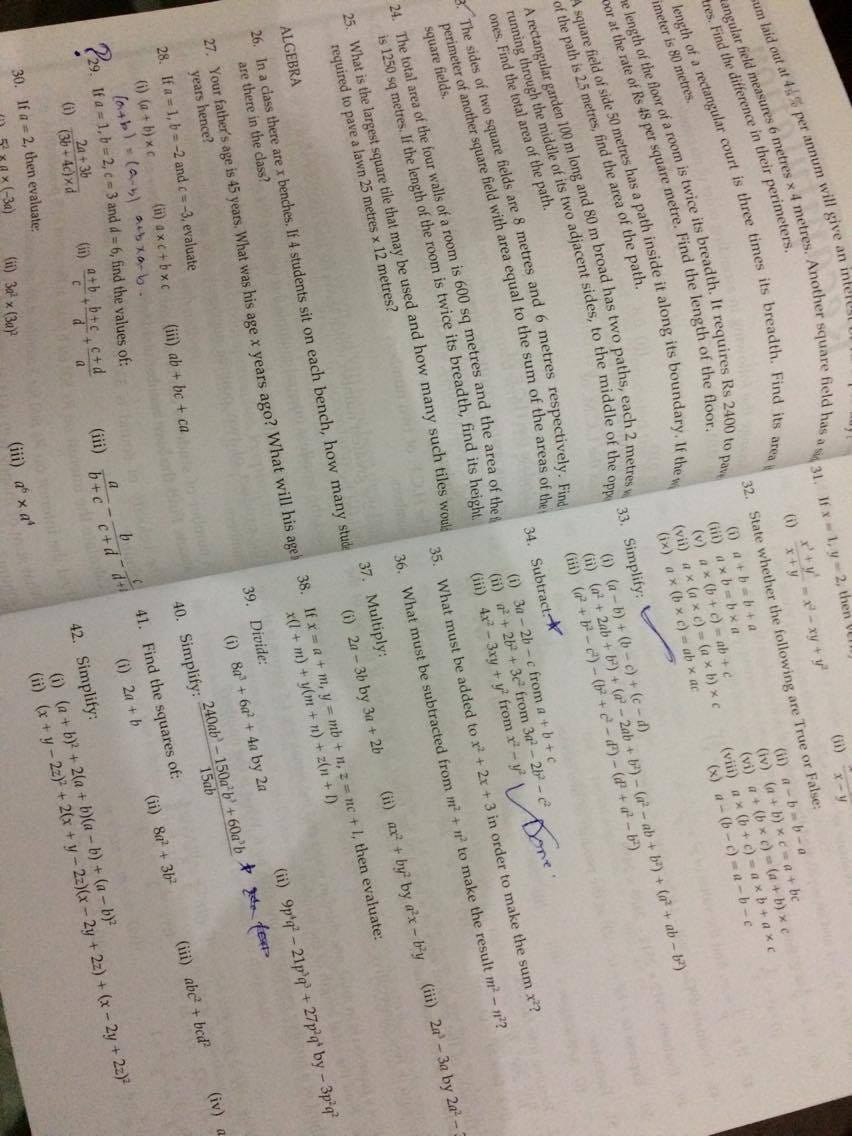 um laid out at 4½% per annum will give an interest
angular field measures 6 metres × 4 metres. Another square field has a
tres. Find the difference in their perimeters.
length of a rectangular court is three times its breadth. Find its area
imeter is 80 metres.
e length of the floor of a room is twice its breadth. It requires Rs 2400 to pav
oor at the rate of Rs 48 per square metre. Find the length of the floor.
A square field of side 50 metres has a path inside it along its boundary. If the w
of the path is 2.5 metres, find the area of the path.
A rectangular garden 100 m long and 80 m broad has two paths, each 2 metres w
running through the middle of its two adjacent sides, to the middle of the oppo
ones. Find the total area of the path.
3. The sides of two square fields are 8 metres and 6 metres respectively. Find
perimeter of another square field with area equal to the sum of the areas of the
square fields.
24. The total area of the four walls of a room is 600 sq metres and the area of the fl
is 1250 sq metres. If the length of the room is twice its breadth, find its height.
25. What is the largest square tile that may be used and how many such tiles would
required to pave a lawn 25 metres × 12 metres?
ALGEBRA
26. In a class there are x benches. If 4 students sit on each bench, how many stude
are there in the class?
27. Your father's age is 45 years. What was his age x years ago? What will his age
years hence?
28. If a = 1, b = –2 and c = –3, evaluate
(i) (a + b) × c (ii) a × c + b × c (iii) ab + bc + ca
(a+b) = (a-b) a+b × a-b .
? 29. If a = 1, b = 2, c = 3 and d = 6, find the values of:
(i) (2a + 3b)/((3b + 4c) × d) (ii) (a + b)/c × (b + c)/d + (c + d)/a (iii) a/(b + c) – b/(c + d) – c/(d +
30. If a = 2, then evaluate:
(i) 5 × a × (–3a) (ii) 3a² × (3a)² (iii) a⁶ × a⁴
31. If x = 1, y = 2, then ver
(i) (x³ + y³)/(x + y) = x² – xy + y² (ii) x – y
32. State whether the following are True or False:
(i) a + b = b + a (ii) a – b = b – a
(iii) a × b = b × a (iv) (a + b) × c = a + bc
(v) a × (b + c) = ab + c (vi) a + (b × c) = (a + b) × c
(vii) a × (a × c) = (a × b) × c (viii) a × (b + c) = a × b + a × c
(ix) a × (b × c) = ab × ac (x) a – (b – c) = a – b – c
33. Simplify:
(i) (a – b) + (b – c) + (c – d)
(ii) (a² + 2ab + b²) + (a² – 2ab + b²) – (a² – ab + b²) + (a² + ab – b²)
(iii) (a² + b² – c²) – (b² + c² – d²) – (d² + a² – b²)
34. Subtract:
(i) 3a – 2b – c from a + b + c
(ii) a² + 2b² + 3c² from 3a² – 2b² – c²
(iii) 4x² – 3xy + y² from x² – y² Done.
35. What must be added to x² + 2x + 3 in order to make the sum x²?
36. What must be subtracted from m² + n² to make the result m² – n²?
37. Multiply:
(i) 2a – 3b by 3a + 2b (ii) ax² + by² by a²x – b²y (iii) 2a³ – 3a by 2a² –
38. If x = a + m, y = mb + n, z = nc + l, then evaluate:
x(l + m) + y(m + n) + z(n + l)
39. Divide:
(i) 8a³ + 6a² + 4a by 2a (ii) 9p⁴q² – 21p³q³ + 27p²q⁴ by – 3p²q²
40. Simplify: (240ab³ – 150a²b³ + 60a³b)/15ab
41. Find the squares of:
(i) 2a + b (ii) 8a² + 3b² (iii) abc² + bcd² (iv) a
42. Simplify:
(i) (a + b)² + 2(a + b)(a – b) + (a – b)²
(ii) (x + y – 2z)² + 2(x + y – 2z)(x – 2y + 2z) + (x – 2y + 2z)²